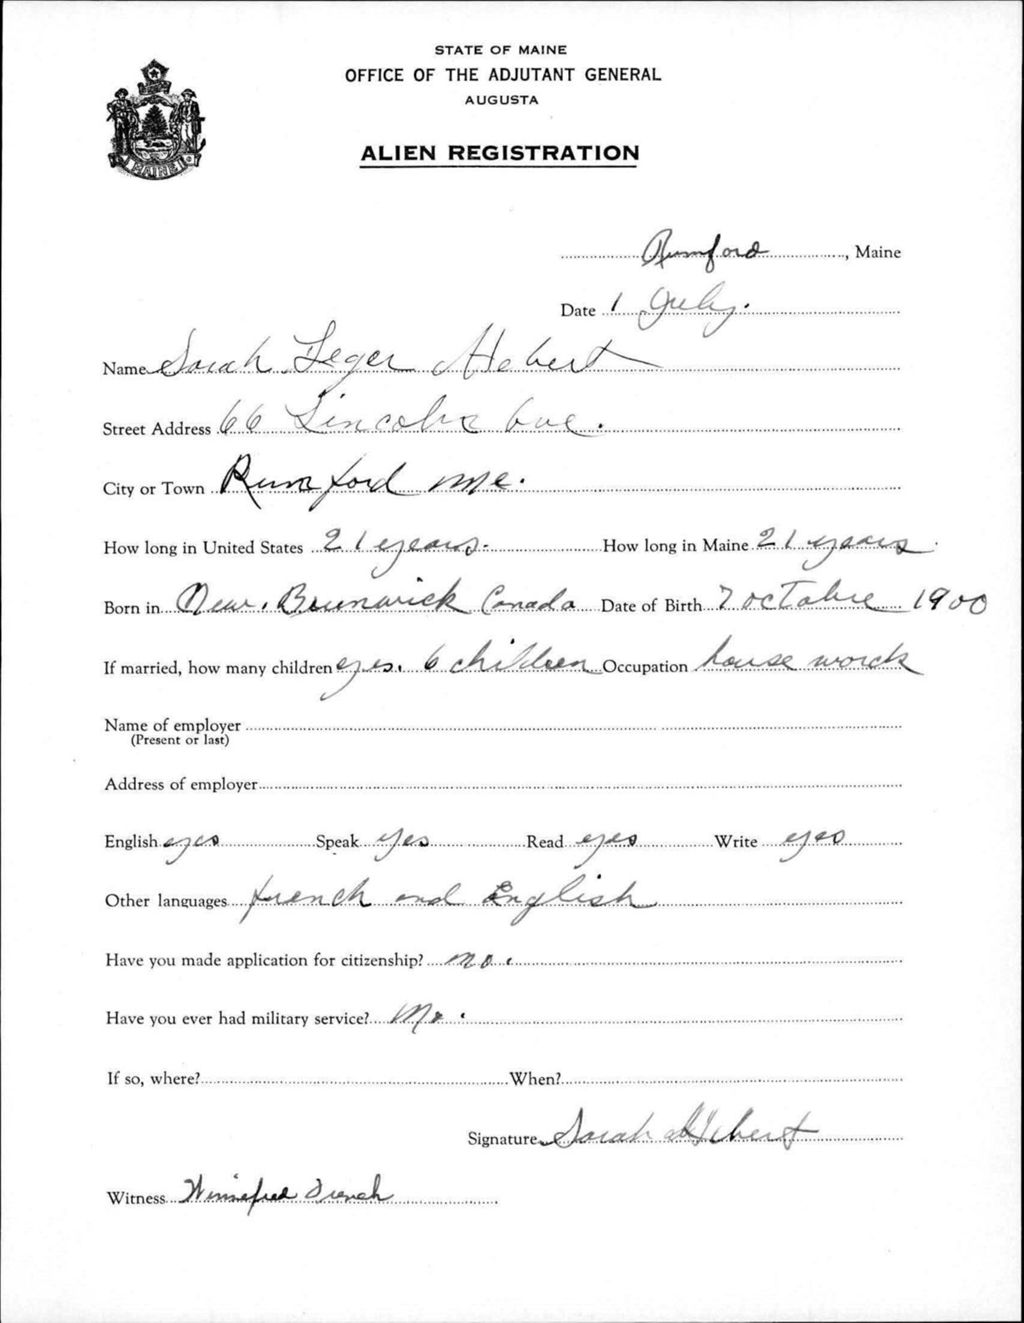 STATE OF MAINE
OFFICE OF THE ADJUTANT GENERAL
AUGUSTA
ALIEN REGISTRATION
MAINE
Rumford, Maine
Date 1 July.
Name Sarah Leger Hebert
Street Address 66 Lincoln Ave.
City or Town Rumford Me.
How long in United States 21 years. How long in Maine 21 years.
Born in New. Brunwick Canada Date of Birth 7 octobre 1900
If married, how many children yes. 6 children Occupation house worck
Name of employer
(Present or last)
Address of employer
English yes Speak yes Read yes Write yes
Other languages french and English
Have you made application for citizenship? no.
Have you ever had military service? No.
If so, where? When?
Signature Sarah Hebert
Witness Winnifred French